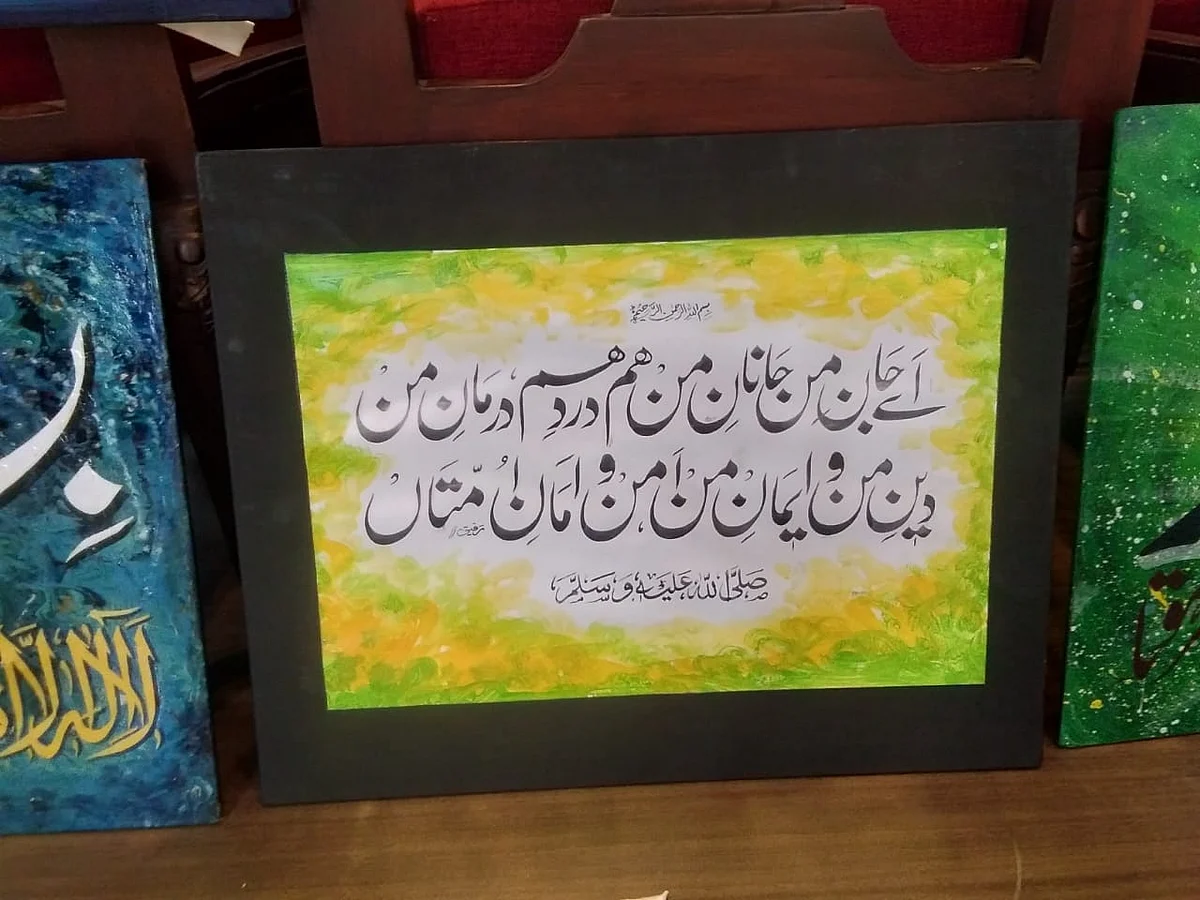 بسم اللہ الرحمٰن الرحیم
اَے جَانِ من جَانانِ من ھم دردِ ھم درمَانِ من
دینِ من و ایمَانِ من اَمن و امَانِ اُمّتَاں
صَلَّی اللّٰہ عَلَیْہِ وَسَلَّمَ